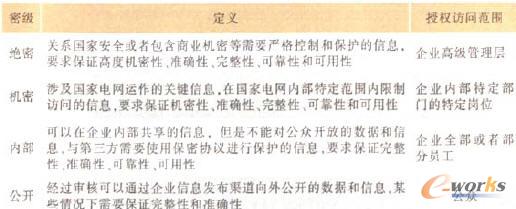 密级 定义 授权访问范围
绝密 关系国家安全或者包含商业机密等需要严格控制和保护的信息,要求保证高度机密性、准确性、完整性、可靠性和可用性 企业高级管理层
机密 涉及国家电网运作的关键信息,在国家电网内部特定范围内限制访问的信息,要求保证机密性、准确性、完整性、可靠性和可用性 企业内部特定部门的特定岗位
内部 可以在企业内部共享的信息,但是不能对公众开放的数据和信息,与第三方需要使用保密协议进行保护的信息,要求保证完整性、准确性、可靠性、可用性 企业全部或者部分员工
公开 经过审核可以通过企业信息发布渠道向外公开的数据和信息,某些情况下需要保证完整性和准确性 公众
e-works